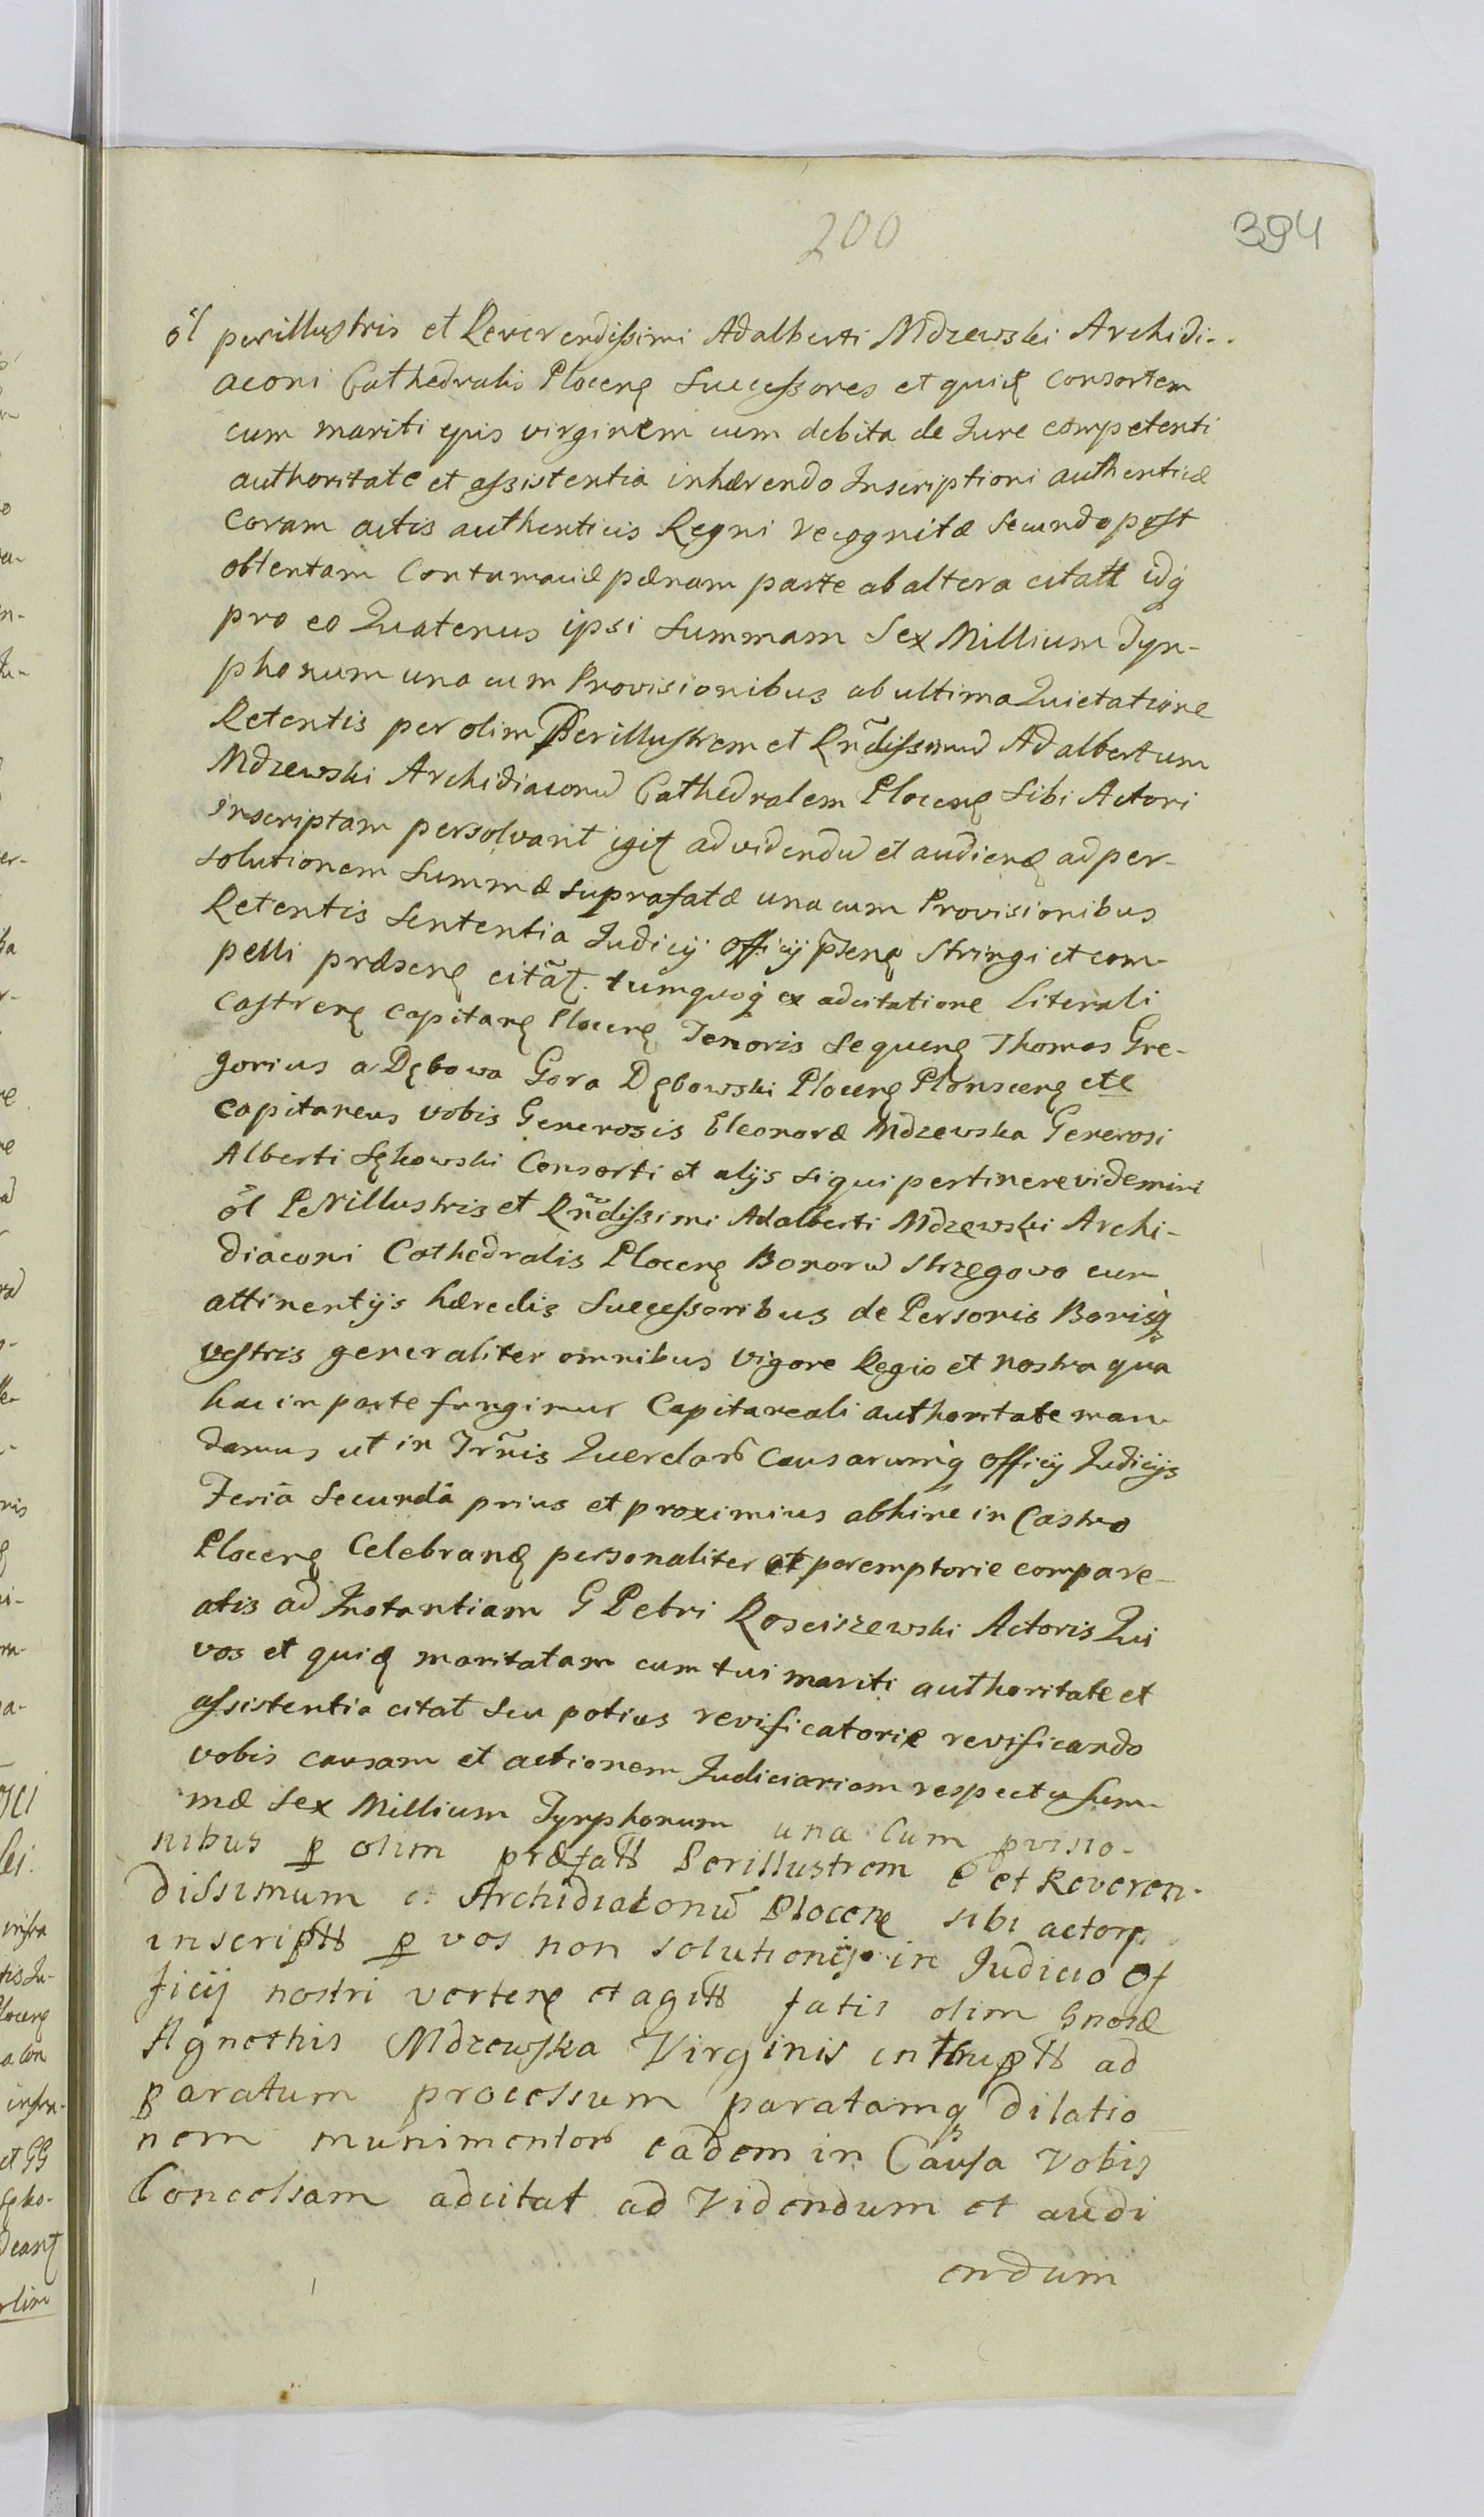 200
394
ol perillustris et Reverendissimi Adalberti Mdzewski Archidi-
aconi Cathedralis Plocenȩ Successores et quidȩ consortem
cum mariti ejus virginem cum debita de Jure competenti
authoritate et assistentia inhærendo Inscriptioni authenticæ
coram actis authenticis Regni recognitæ secundo post
obtentam Contumaciæ pænam parte ab altera citatt idq
pro eo Quatenus ipsi Summam Sex Millium Tyn-
phonum una cum Provisionibus ab ultima Quietatione
Retentis per olim Perillustrem et Rñdissimu Adalbertum
Mdzewski Archidiaconu Cathedralem Plocenȩ Sibi Actori
inscriptam persolvant igit ad videndu et audiendȩ ad per-
solutionem Summæ suprafatæ una cum Provisionibus
Retentis Sententia Judicij Officij p̃senȩ Stringi et com-
pelli præsenȩ citat. tumquoq ex adcitatione Literali
castrenȩ capitanȩ Plocenȩ Tenoris Sequenȩ Thomas Gre-
gorius a Dębowa Gora Dębowski Plocenȩ Plonscenȩ etc
capitaneus vobis Generosis Eleonoræ Mdzewska Generosi
Alberti Sękowski Consorti et alijs siqui pertinere videmini
ol Perillustris et Rñdissimi Adalberti Mdzewski Archi-
diaconi Cathedralis Plocenȩ Bonoru Strzegowo cum
attinentijs hæredis Successoribus de Personis Bonisq
vestris generaliter omnibus vigore Regio et nostra qua
hac in parte fungimur Capitaneali authoritate man-
damus ut in Trm̃is Querelaru Causarumq officij Judicijs
Feriâ Secundâ prius et proximius abhinc in Castro
Plocenȩ Celebrandȩ personaliter et peremptorie compare-
atis ad Instantiam G Petri Rosciszewski Actoris Qui
vos et quidȩ maritatam cum tui mariti authoritate et
assistentia citat seu potius revificatorie revificando
vobis causam et actionem Judiciariam respectu Sum-
mæ Sex Millium Tynphonum una cum pvisio-
nibus p olim præfatt Perillustrem et Reveren-
dissimum Archidiaconu Plocenȩ sibi actori
inscriptt p vos non solutionis in Judicio of
ficij nostri vertenȩ et agitt fatis olim Gnosæ
Agnethis Mdzewska Virginis intruptt ad
paratum processum paratamq dilatio
nem munimentor eadem in Causa Vobis
Concessam adcitat ad Videndum et audi
endum